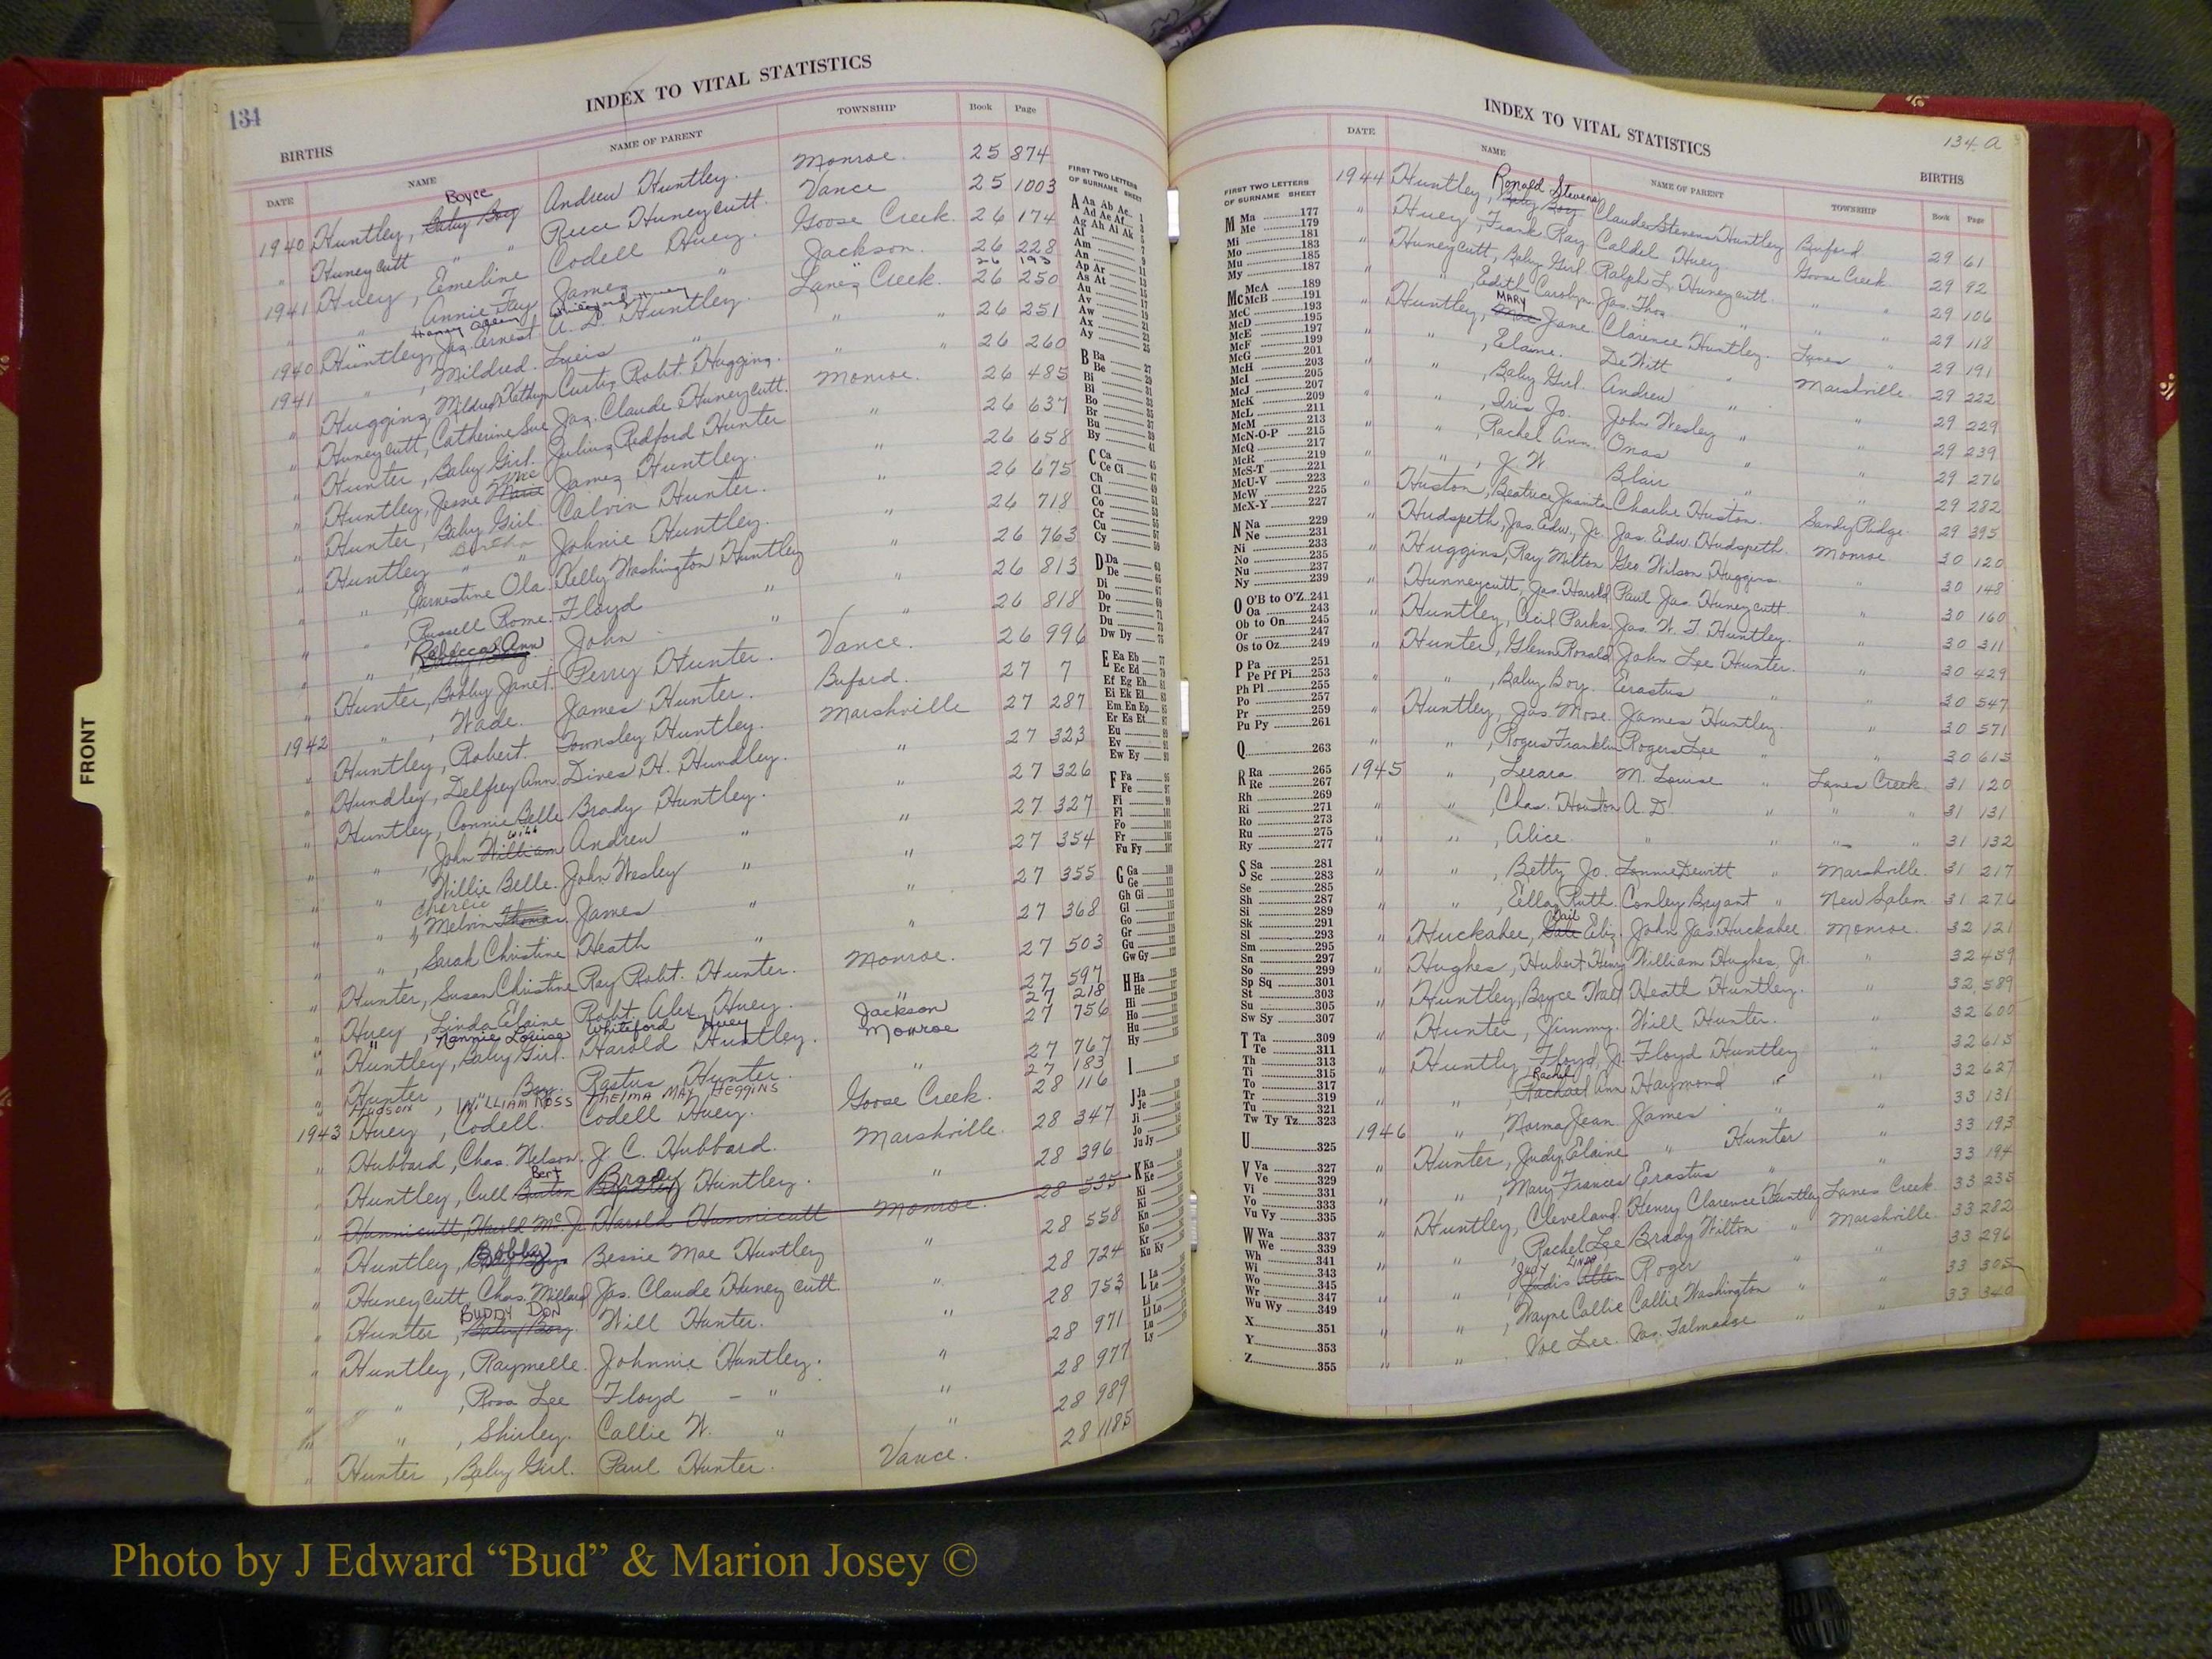 134
INDEX TO VITAL STATISTICS
BIRTHS
DATE NAME NAME OF PARENT TOWNSHIP Book Page
1940 Huntley, Baby Boy Boyce Andrew Huntley. Monroe. 25 874
" Huneycutt " " Reece Huneycutt. Vance 25 1003
1941 Huey, Emeline Codell Huey. Goose Creek. 26 174
" " Annie Fay James " Jackson. 26 228
26 193
1940 Huntley, Jas. Ernest A. D. Huntley. Lanes Creek. 26 250
1941 " , Mildred. Luis " " " 26 251
" Huggins, Mildred Kathryn Curtis Robt. Huggins. " " 26 260
" Huneycutt, Catherine Sue Jas. Claude Huneycutt. Monroe. 26 485
" Hunter, Baby Girl. Julius Redford Hunter " 26 637
" Huntley, Jessie Marie Mae James Huntley. " 26 658
" Hunter, Baby Girl. Calvin Hunter. " 26 675
" Huntley " " Johnie Huntley. " 26 718
" " , Earnestine Ola. Kelly Washington Huntley " 26 763
" " , Russell Rome. Floyd " " 26 813
" " , Rebecca Ann John " " 26 818
" Hunter, Bobby Janet. Perry Hunter. Vance. 26 996
1942 " , Wade. James Hunter. Buford. 27 7
" Huntley, Robert. Townsley Huntley. Marshville 27 287
" Hundley, Delfrey Ann. Dives H. Hundley. " 27 323
" Huntley, Connie Belle Brady Huntley. " 27 326
" " , John William Will Andrew " " 27 327
" " Willie Belle. John Wesley " " 27 354
" " , Melvin Thomas Charlie James " " 27 355
" " , Sarah Christine Heath " " 27 368
" Hunter, Susan Christine Ray Robt. Hunter. Monroe. 27 503
" Huey, Linda Elaine Robt. Alex Huey. " 27 597
" " Nannie Louise Whiteford Huey Jackson 27 218
" Huntley, Baby Girl. Harold Huntley. Monroe 27 756
" Hunter " Boy. Rastus Hunter. " 27 767
" HUDSON, WILLIAM ROSS THELMA MAY HEGGINS 27 183
1943 Huey, Codell. Codell Huey. Goose Creek. 28 116
" Hubbard, Chas. Nelson. J. C. Hubbard. Marshville. 28 347
" Huntley, Cull Burton Bert Brady Huntley. " 28 396
Hunnicutt, Harold Mc Jr. Harold Hunnicutt Monroe. 28 535
" Huntley, Bobby Bessie Mae Huntley " 28 558
" Huneycutt, Chas. Millard Jas. Claude Huneycutt. " 28 724
" Hunter, Baby Boy. BUDDY DON Will Hunter. " 28 753
" Huntley, Raymelle. Johnnie Huntley. " 28 971
" " , Rosa Lee Floyd - " " 28 977
" " , Shirley. Callie W. " " 28 989
" Hunter, Baby Girl. Paul Hunter. Vance. 28 1185
FIRST TWO LETTERS
OF SURNAME SHEET
A Aa Ab Ac 1
Ad Ae Af 3
Ag Ah Ai Ak 5
Al
Am
An
Ap Ar 11
As At 13
Au
Av
Aw
Ax
Ay
B Ba 27
Be
Bi
Bl
Bo
Br
Bu
By
C Ca
Ce Ci
Ch
Cl
Co
Cr
Cu
Cy
D Da
De
Di
Do
Dr
Du
Dw Dy
E Ea Eb
Ec Ed
Ef Eg Eh
Ei Ek El
Em En Ep
Er Es Et
Eu
Ev
Ew Ey
F Fa
Fe
Fi
Fl
Fo
Fr
Fu Fy
G Ga
Ge
Gh Gi
Gl
Go
Gr
Gu
Gw Gy
H Ha
He
Hi
Ho
Hu
Hy
I
J Ja
Je
Ji
Jo
Ju Jy
K Ka
Ke
Ki
Kl
Kn
Ko
Kr
Ku Ky
L La
Le
Li
Ll Lo
Lu
Ly
FRONT
INDEX TO VITAL STATISTICS
134-A
BIRTHS
FIRST TWO LETTERS
OF SURNAME SHEET
M Ma 177
Me 179
Mi 181
Mo 183
Mu 185
My 187
Mc McA 189
McB 191
McC 193
McD 195
McE 197
McF 199
McG 201
McH 203
McI 205
McJ 207
McK 209
McL 211
McM 213
McN-O-P 215
McQ 217
McR 219
McS-T 221
McU-V 223
McW 225
McX-Y 227
N Na 229
Ne 231
Ni 233
No 235
Nu 237
Ny 239
O O'B to O'Z 241
Oa 243
Ob to On 245
Or 247
Os to Oz 249
P Pa 251
Pe Pf Pi 253
Ph Pl 255
Po 257
Pr 259
Pu Py 261
Q 263
R Ra 265
Re 267
Rh 269
Ri 271
Ro 273
Ru 275
Ry 277
S Sa 281
Sc 283
Se 285
Sh 287
Si 289
Sk 291
Sl 293
Sm 295
Sn 297
So 299
Sp Sq 301
St 303
Su 305
Sw Sy 307
T Ta 309
Te 311
Th 313
Ti 315
To 317
Tr 319
Tu 321
Tw Ty Tz 323
U 325
V Va 327
Ve 329
Vi 331
Vo 333
Vu Vy 335
W Wa 337
We 339
Wh 341
Wi 343
Wo 345
Wr 347
Wu Wy 349
X 351
Y 353
Z 355
DATE NAME NAME OF PARENT TOWNSHIP Book Page
1944 Huntley, Baby Boy Ronald Stevens Claude Stevens Huntley Buford. 29 61
" Huey, Frank Ray Caldel Huey. Goose Creek. 29 92
" Huneycutt, Baby Girl. Ralph L. Huneycutt. " " 29 106
" " , Edith Carolyn. Jas. Thos. " " " 29 118
" Huntley, Mae MARY Jane Clarence Huntley. Lanes " 29 191
" " , Elaine. DeWitt " Marshville. 29 222
" " , Baby Girl. Andrew " " 29 229
" " , Iris Jo. John Wesley " " 29 239
" " , Rachel Ann. Onas " " 29 276
" " , J. W. Blair " " 29 282
" Huston, Beatrice Juanita Charlie Huston. Sandy Ridge. 29 395
" Hudspeth, Jas. Edw., Jr. Jas. Edw. Hudspeth. Monroe 30 120
" Huggins, Ray Milton Geo. Wilson Huggins. " 30 148
" Hunneycutt, Jas. Harold Paul Jas. Huneycutt. " 30 160
" Huntley, Cecil Parks. Jas. W. T. Huntley. " 30 311
" Hunter, Glenn Ronald John Lee Hunter. " 30 429
" " , Baby Boy. Erastus " " 30 547
" Huntley, Jas. Mose. James Huntley. " 30 571
" " , Rogers Franklin Rogers Lee " " 30 613
1945 " , Leeara M. Louise " Lanes Creek. 31 120
" " , Chas. Houston A. D. " " " 31 131
" " , Alice. " " " " 31 132
" " , Betty Jo. Lonnie Dewitt " Marshville. 31 217
" " , Ella Ruth. Conley Bryant " New Salem. 31 276
" Huckabee, Gale Dail Eliz. John Jas. Huckabee. Monroe. 32 121
" Hughes, Hubert Henry William Hughes, Jr. " 32 459
" Huntley, Boyce Walt Heath Huntley. " 32 589
" Hunter, Jimmy. Will Hunter. " 32 600
" Huntly, Floyd, Jr. Floyd Huntley " 32 615
" " , Rachael Rachel Ann Haymond " " 32 627
1946 " , Norma Jean James " " 33 131
" Hunter, Judy Elaine " Hunter " 33 193
" " , Mary Frances Erastus " " 33 194
" Huntley, Cleveland. Henry Clarence Huntley Lanes Creek. 33 235
" " , Rachel Lee Brady Wilton " Marshville. 33 282
" " , Judis JUDY LINDA Roger " " 33 296
" " , Wayne Callie Callie Washington " " 33 305
" " Voe Lee. Jas. Talmadge " " 33 340
Photo by J Edward “Bud” & Marion Josey ©